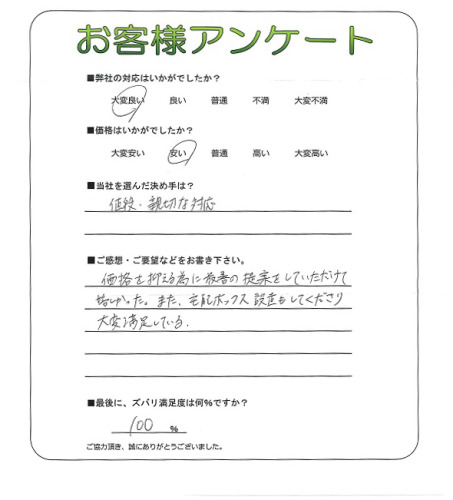 お客様アンケート
■弊社の対応はいかがでしたか?
大変良い 良い 普通 不満 大変不満
■価格はいかがでしたか?
大変安い 安い 普通 高い 大変高い
■当社を選んだ決め手は?
値段・親切な対応
■ご感想・ご要望などをお書き下さい。
価格を抑える為に最善の提案をしていただけて
嬉しかった。また、宅配ボックス設置もしてくださり
大変満足している。
■最後に、ズバリ満足度は何%ですか?
100 %
ご協力頂き、誠にありがとうございました。